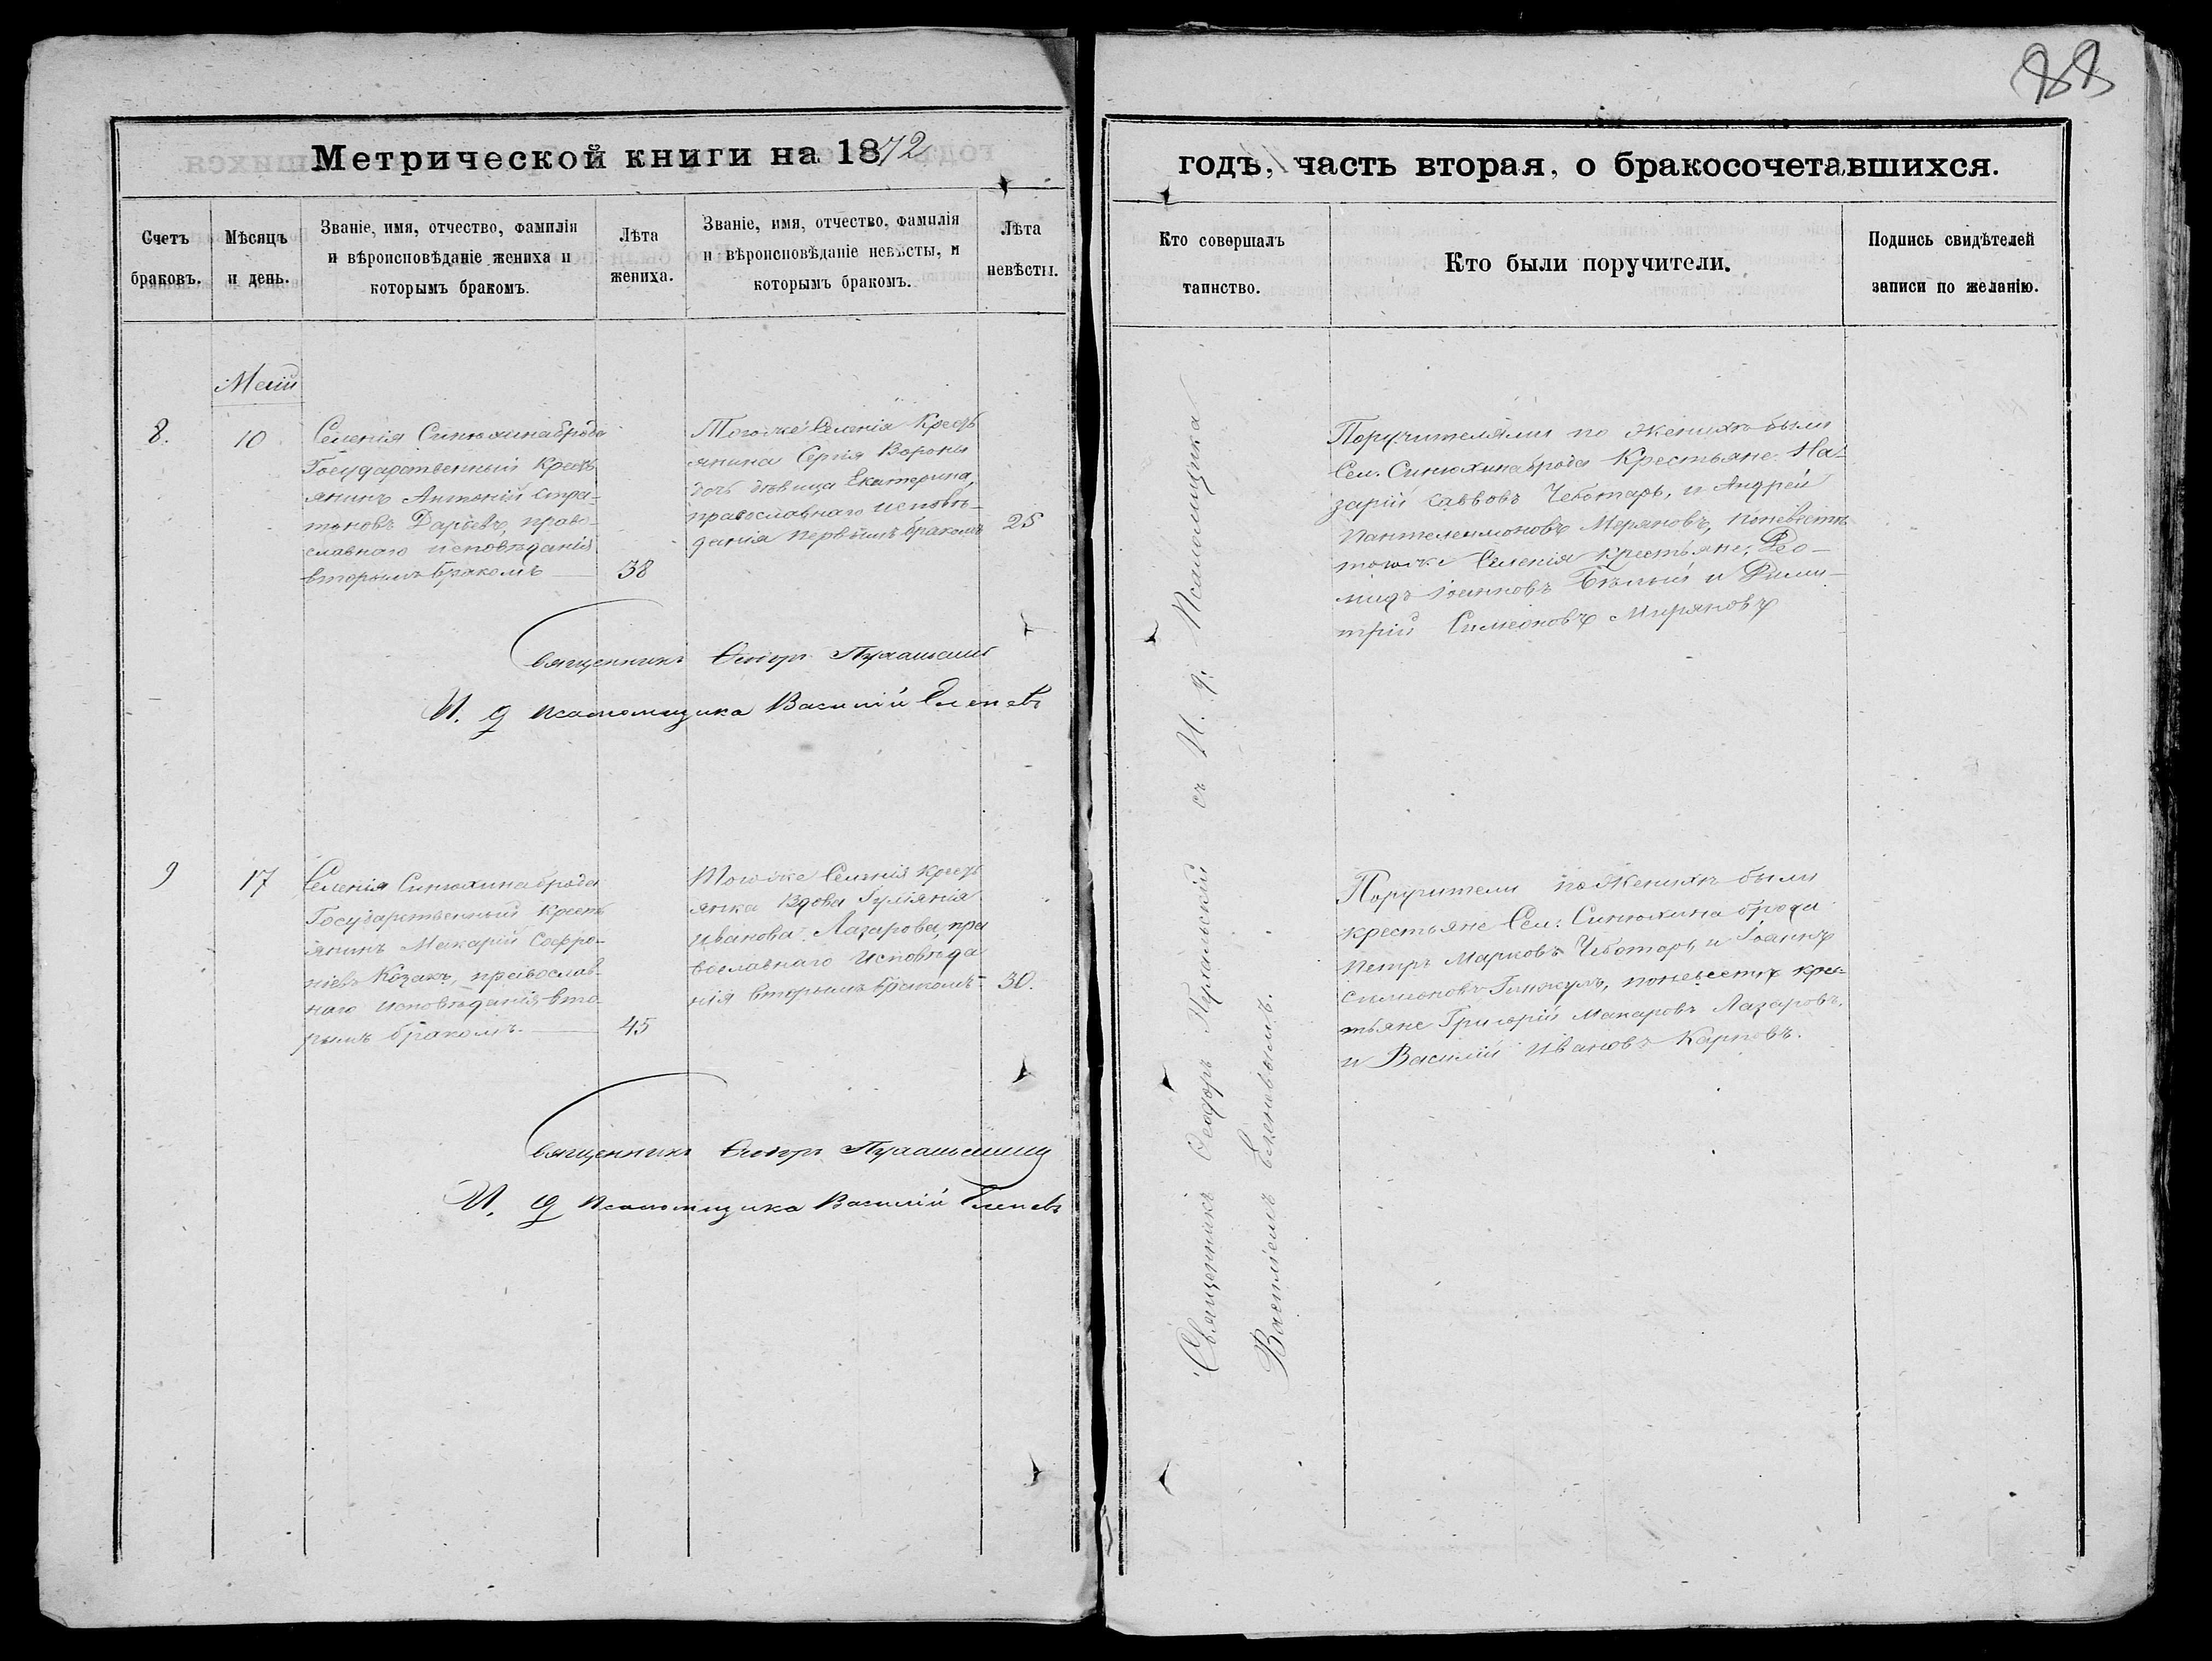 88
Метрической книги на 1872
годъ, часть вторая, о бракосочетавшихся.
Счетъ браковъ.
Мѣсяцъ и день.
Званіе, имя, отчество, фамилія
и вѣроисповѣданіе жениха и
которымъ бракомъ.
Лѣта жениха.
Званіе, имя, отчество, фамилія
и вѣроисповѣданіе невѣсты, и
которымъ бракомъ.
Лѣта невѣсты.
Кто совершалъ
таинство.
Кто были поручители.
Подпись свидѣтелей
записи по желанію.
Маій
8.
10
Селенія Синюхинаброда
Государственный Кресть
янинъ Антоній Стра-
тоновъ право-
славнаго исповѣданія
вторымъ бракомъ
38
Тогоже Селенія Кресть
янина Сергія Вороны
дочь дѣвица Екатерина,
православнаго исповѣ-
данія первымъ бракомъ
25
Поручителями по Женихѣ были
Сел. Синюхинаброда Крестьяне На-
зарій Саввовъ Чеботарь, и Андрей
Пантелеимоновъ Меряновъ, поневѣстѣ
тогоже Селенія Крестьяне, Део-
мидъ Іоанновъ Бѣлый и Дими-
трій Симеоновъ Миряновъ
Священникъ Ѳеодоръ
И. д Псаломщика Василій Еленевъ
9
17
Селенія Синюхинаброда
Государственный Кресть
янинъ Макарій Софро-
ніевъ Козакъ, православ-
наго исповѣданія вто-
рымъ бракомъ.
45
Тогоже Селенія Кресть
янка Вдова Іуліянія
Иванова Лазарова, пра
вославнаго исповѣда
нія вторымъ бракомъ
30.
Поручители по Женихѣ были
крестьяне Сел: Синюхина брода
Петръ Марковъ Чеботарь, и Іоаннъ
Симеоновъ поневѣстѣ крес-
тьяне Григорій Макаровъ Лазаровъ,
и Василій Ивановъ Карповъ.
Священникъ Ѳеодоръ
И. д Псаломщика Василій Еленевъ
Священникъ Ѳеодоръ съ И. д: Псаломщика
Василіемъ Еленевымъ.